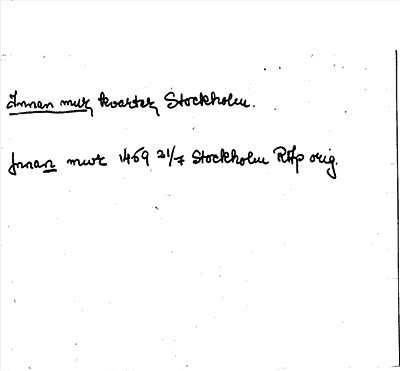 Innan mur, kvarter, Stockholm.
Innan mur 1469 21/7 Stockholm RAp orig.